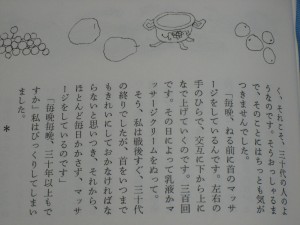 く、それこそ、三十代の人のよ
うなのです。そうおっしゃるま
で、そのことにはちっとも気が
つきませんでした。
「毎晩、ねる前に首のマッサ
ージをしているんです。左右の
手のひらで、交互に下から上に
なで上げていくのです。三百回
です。その日によって乳液かマ
ッサージクリームをぬって。
そう、私は戦後すぐ、三十代
の終りでしたが、首をいつまで
もきれいにしておかなければな
らないと思いつき、それから、
ほとんど毎日かかさず、マッサ
ージをしているのです」
「毎晩毎晩、三十年以上もで
すか」私はびっくりしてしまい
ました。
*